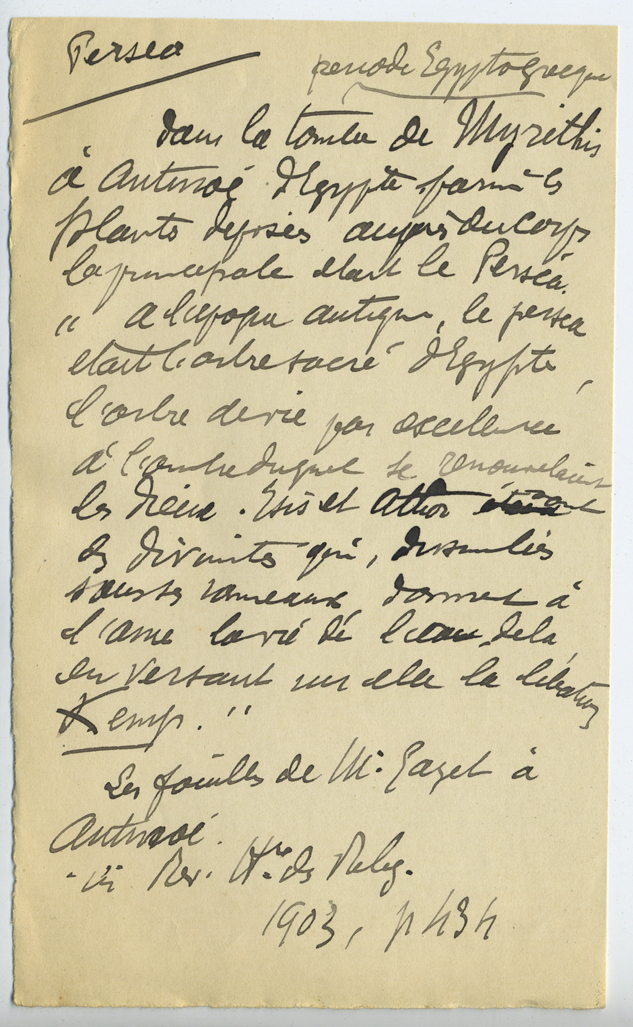 Persea
periode Egyptogrecque
dans la tombe de Myrithis
à Antinoé d'Egypte parmi les
plantes deposées auprès du corps
la principale etait le Perséa.
" a l'epoque antique, le persea
etait l'arbre sacré d'Egypte,
l'arbre de vie par excellence
à l'ombre duquel se renouvelaient
les dieux. Isis et Athor sont
les divinités qui, dissimulées
sous ses rameaux, donnent à
l'ame la vie de l'au dela,
en versant sur elle la libation
Kemp. "
Les fouilles de Mr. Gayet à
Antinoé.
- in Rev. Hre. des Relig.
1903, p 434